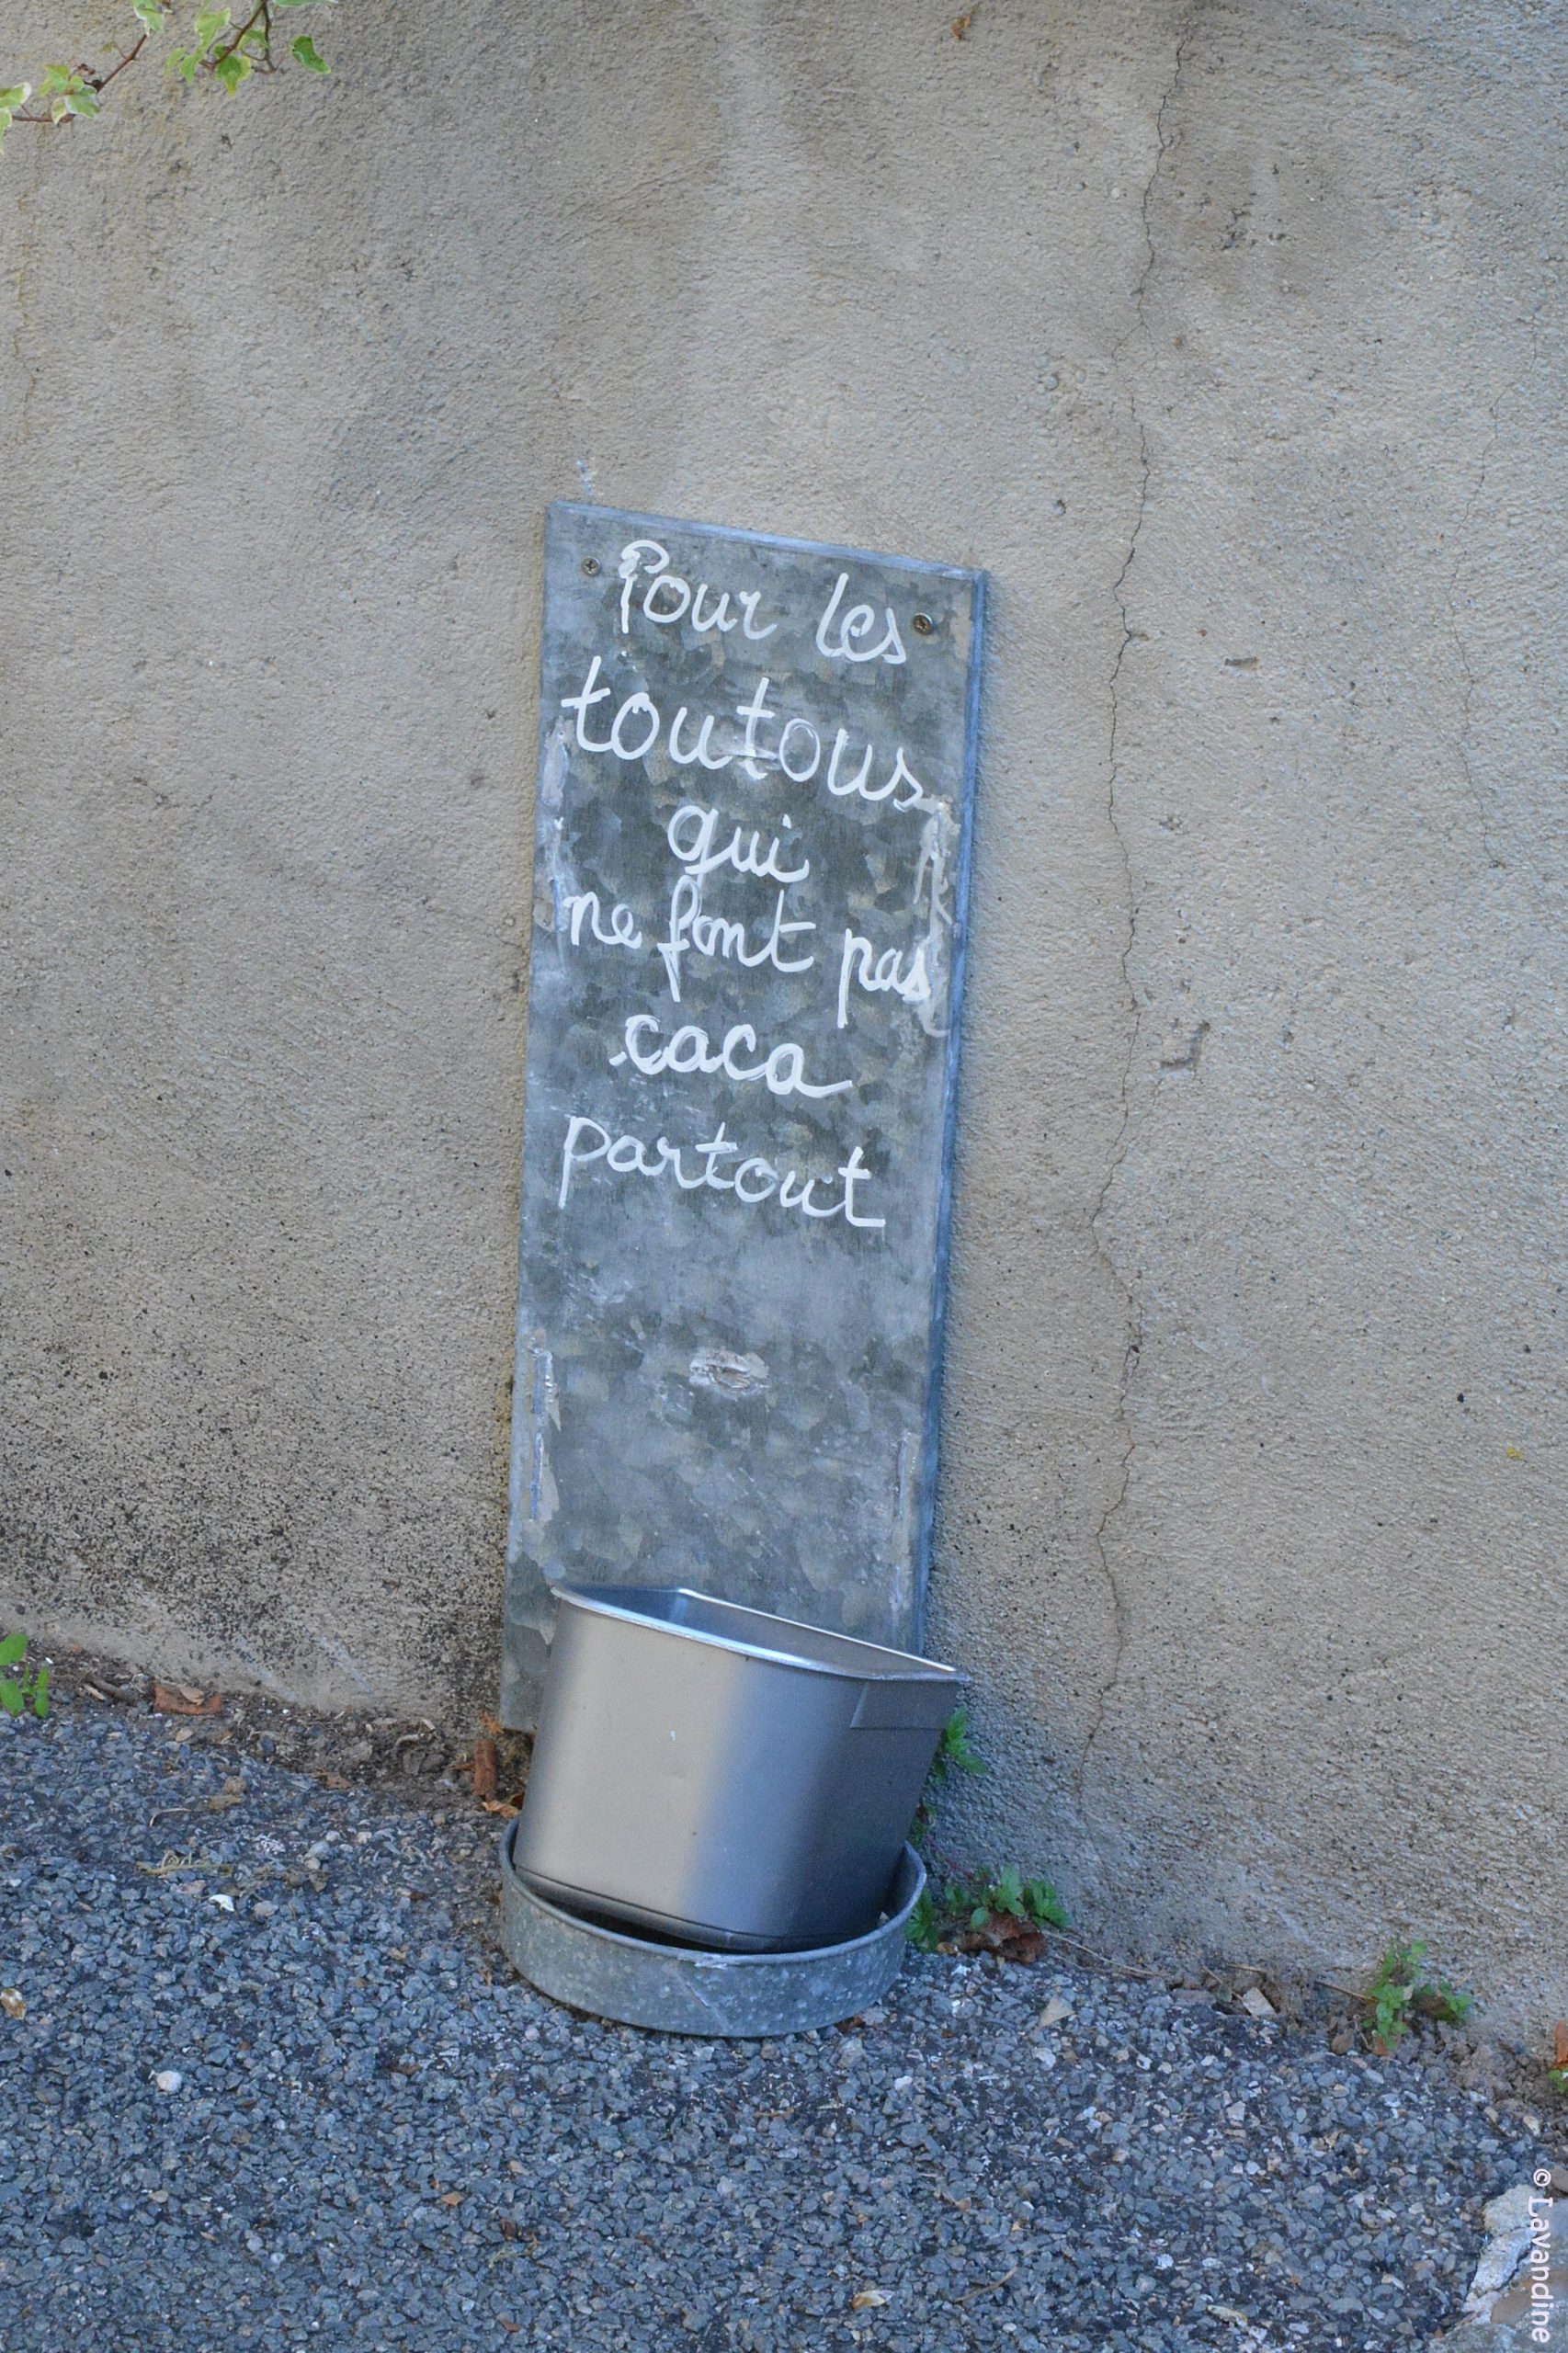 Pour les
toutous
qui
ne font pas
caca
partout
© Lavandine